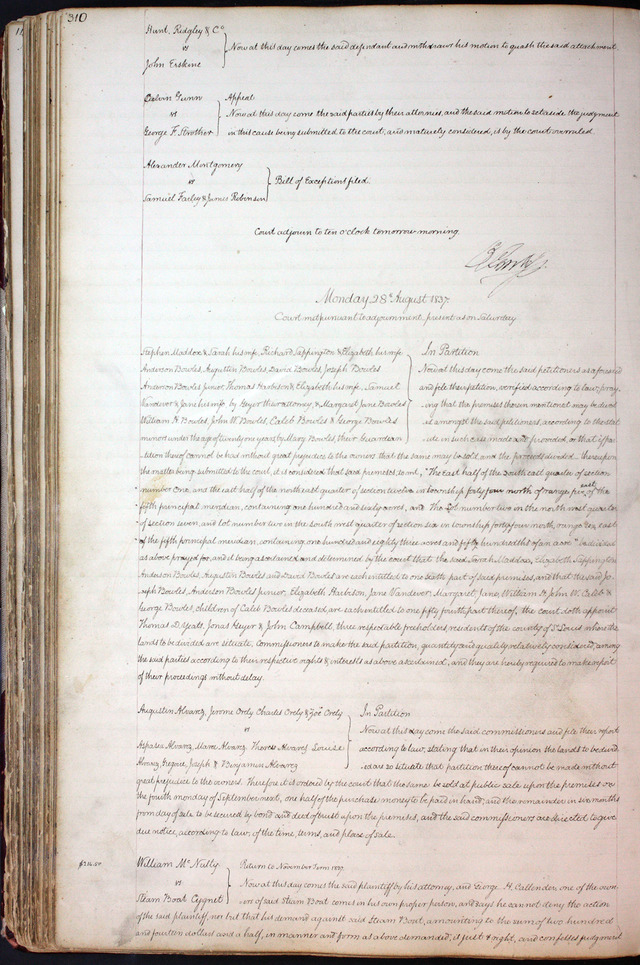 310
Hunt, Ridgley & Co
vs
John Erskine
Now at this day comes the said defendant and withdraws his motion to quash the said attachment.
Calvin Gunn
vs
George F. Strother
Appeal
Now at this day come the said parties by their attornies, and the said motion to set aside the judgment
in this cause being submitted to the court, and maturely considered, is by the court overruled.
Alexander Montgomery
vs
Samuel Farley & James Robinson
Bill of Exceptions filed.
Court adjourn to ten o'clock tomorrow morning.
Monday 28th August 1837.
Court met pursuant to adjournment, present as on Saturday
Stephen Maddox & Sarah his wife, Richard Sappington & Elizabeth his wife
Anderson Bowles, Augustin Bowles, David Bowles, Joseph Bowles
Anderson Bowles Junior, Thomas Harbison & Elizabeth his wife, Samuel
Vandever & Jane his wife by Geyer their attorney, & Margaret Jane Bowles
William H Bowles, John W. Bowles, Caleb Bowles & George Bowles
minors under the age of twenty one years by Mary Bowles, their Guardian
In Partition
Now at this day come the said petitioners as aforesaid
and file their petition, verified according to law, pray
ing that the premises therein mentioned may be divid
ed amongst the said petitioners according to the stat
ute in such case made and provided, or that if par
tition thereof cannot be had without great prejudice to the owners that the same may be sold and the proceeds divided thereupon
the matter being submitted to the court, it is considered that said premises, to wit, "The East half of the South east quarter of section
number One, and the east half of the northeast quarter of section twelve in township forty four north of range five east of the
fifth principal meridian, containing one hundred and sixty acres, and The Lot number two in the north west quarter
of section seven, and lot number two in the south west quarter of section six in township forty four north, range six, east
of the fifth principal meridian, containing one hundred and eighty three acres and fifty hundredths of an acre" be divided
as above prayed for, and it being ascertained and determined by the court that the said Sarah Maddox, Elizabeth Sappington
Anderson Bowles, Augustin Bowles and David Bowles are each entitled to one sixth part of said premises, and that the said Jo
seph Bowles Anderson Bowles Junior, Elizabeth Harbison, Jane Vandever, Margaret Jane, William H, John W, Caleb &
George Bowles, children of Caleb Bowles deceased, are each entitled to one fifty fourth part thereof, the court doth appoint
Thomas D. Yeats, Jonas Geyer & John Campbell, three respectable freeholders residents of the county of St Louis where the
lands to be divided are situate, Commissioners to make the said partition, quantity and quality relatively considered, among
the said parties according to their respective rights & interests as above ascertained, and they are hereby required to make report
of their proceedings without delay.
Augustin Alvarez, Jerome Orely Charles Orely & Zoe Orely
vs
Aspasia Alvarez, Marie Alvarez Therese Alvarez Louise
Alvarez, Gregoire, Joseph & Benjamin Alvarez
In Partition
Now at this day come the said commissioners and file their report
according to law, stating that in their opinion the lands to be divid
ed are so situate that partition thereof cannot be made without
great prejudice to the owners. Therefore it is ordered by the court that the same be sold at public sale upon the premises on
the fourth monday of September next, one half of the purchase money to be paid in hand, and the remainder in six months
from day of sale to be secured by bond and deed of trust upon the premises, and the said commissioners are directed to give
due notice, according to law, of the time, terms, and place of sale.
$214.50
William McNulty
vs
Steam Boat Cygnet
Return to November Term 1837.
Now at this day comes the said plaintiff by his attorney, and George H. Callender one of the own
ers of said Steam Boat comes in his own proper person, and says he cannot deny the action
of the said plaintiff, nor but that his demand against said Steam Boat, amounting to the sum of two hundred
and fourteen dollars and a half, in manner and form as above demanded, is just & right, and confesses judgment